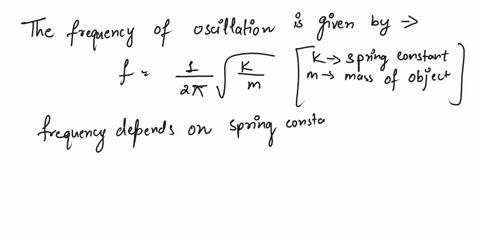 The frequency of oscillation is given by →
f = 1/2π √K/m [K → spring constant
m → mass of object]
frequency depends on spring consta